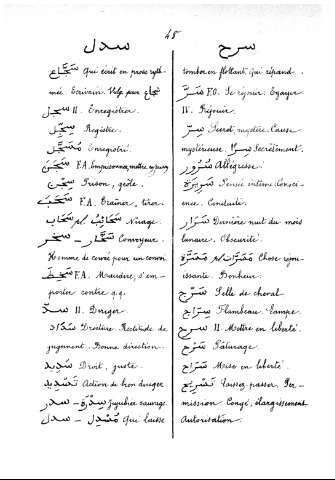 45
سدل
سجّاع Qui écrit en prose ryth-
mée. Ecrivain. Vulg. pour شجاع
سجّل II. Enregistrer
سجلّ Registre.
مسجّل Enregistré.
سجن F.A. Emprisonner, mettre en prison
سجن Prison, geôle.
سحب F.A. Traîner, tirer
سحاب pl. سحائب Nuage.
سخّار - سخر Convoyeur.
Homme de corvée pour un convoi
سخط F.A. Maudire, s'em-
porter contre q.q.
سدّ II. Diriger
سداد Droiture. Rectitude de
jugement. Bonne direction.
سديد Droit, juste.
تسديد Action de bien diriger
سدرة - سدر Jujubier sauvage.
مسدل - سدل Qui laisse
سرح
tomber en flottant, qui répand.
سرّ F.O. Se réjouir. Egayer
IV. Réjouir.
سرّ Secret, mystère. Cause
mystérieuse. سرّا Secrètement.
سرور Allégresse.
سريرة Pensée intime. Consci-
ence. Conduite.
سرار Dernière nuit du mois
lunaire. Obscurité.
مسرّة pl. مسرّات Chose réjou-
issante. Bonheur.
سرج Selle de cheval.
سراج Flambeau. Lampe.
سرح II. Mettre en liberté.
سرح Pâturage.
سراح Mise en liberté.
تسريح Laissez-passer. Per-
mission. Congé, élargissement
Autorisation.